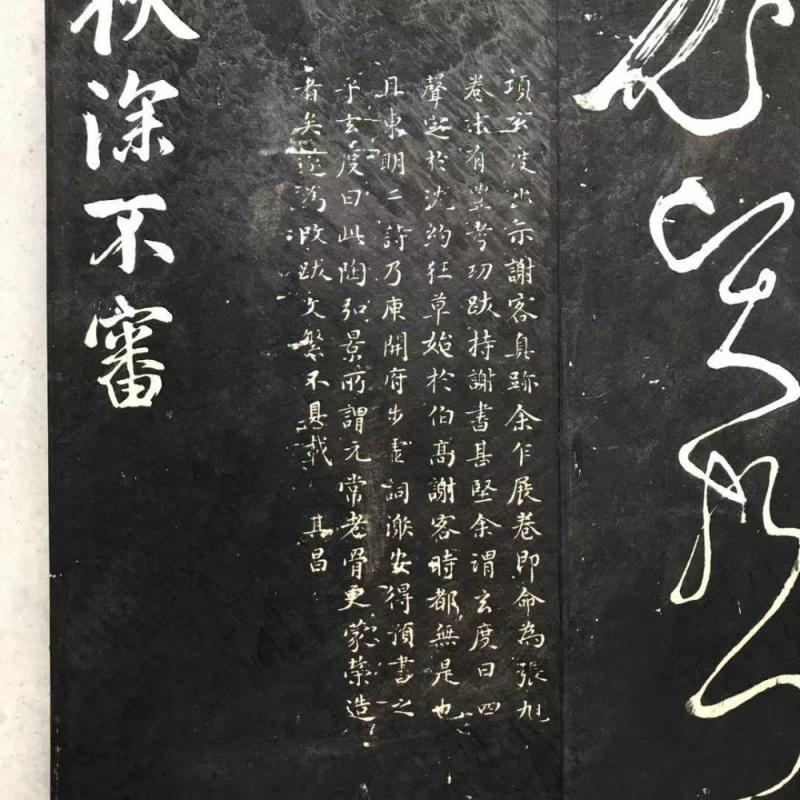 項玄度出示謝客真跡余乍展卷即命為張旭
卷末有豐考功跋持謝書甚堅余謂玄度曰四
聲定於沈約狂草始於伯高謝客時都無是也
且東明二詩乃庾開府步虛詞謝安得預書之
乎玄度曰此陶弘景所謂元常老骨更蒙榮造
者矣遂為改跋文繁不具載 其昌
秋深不審